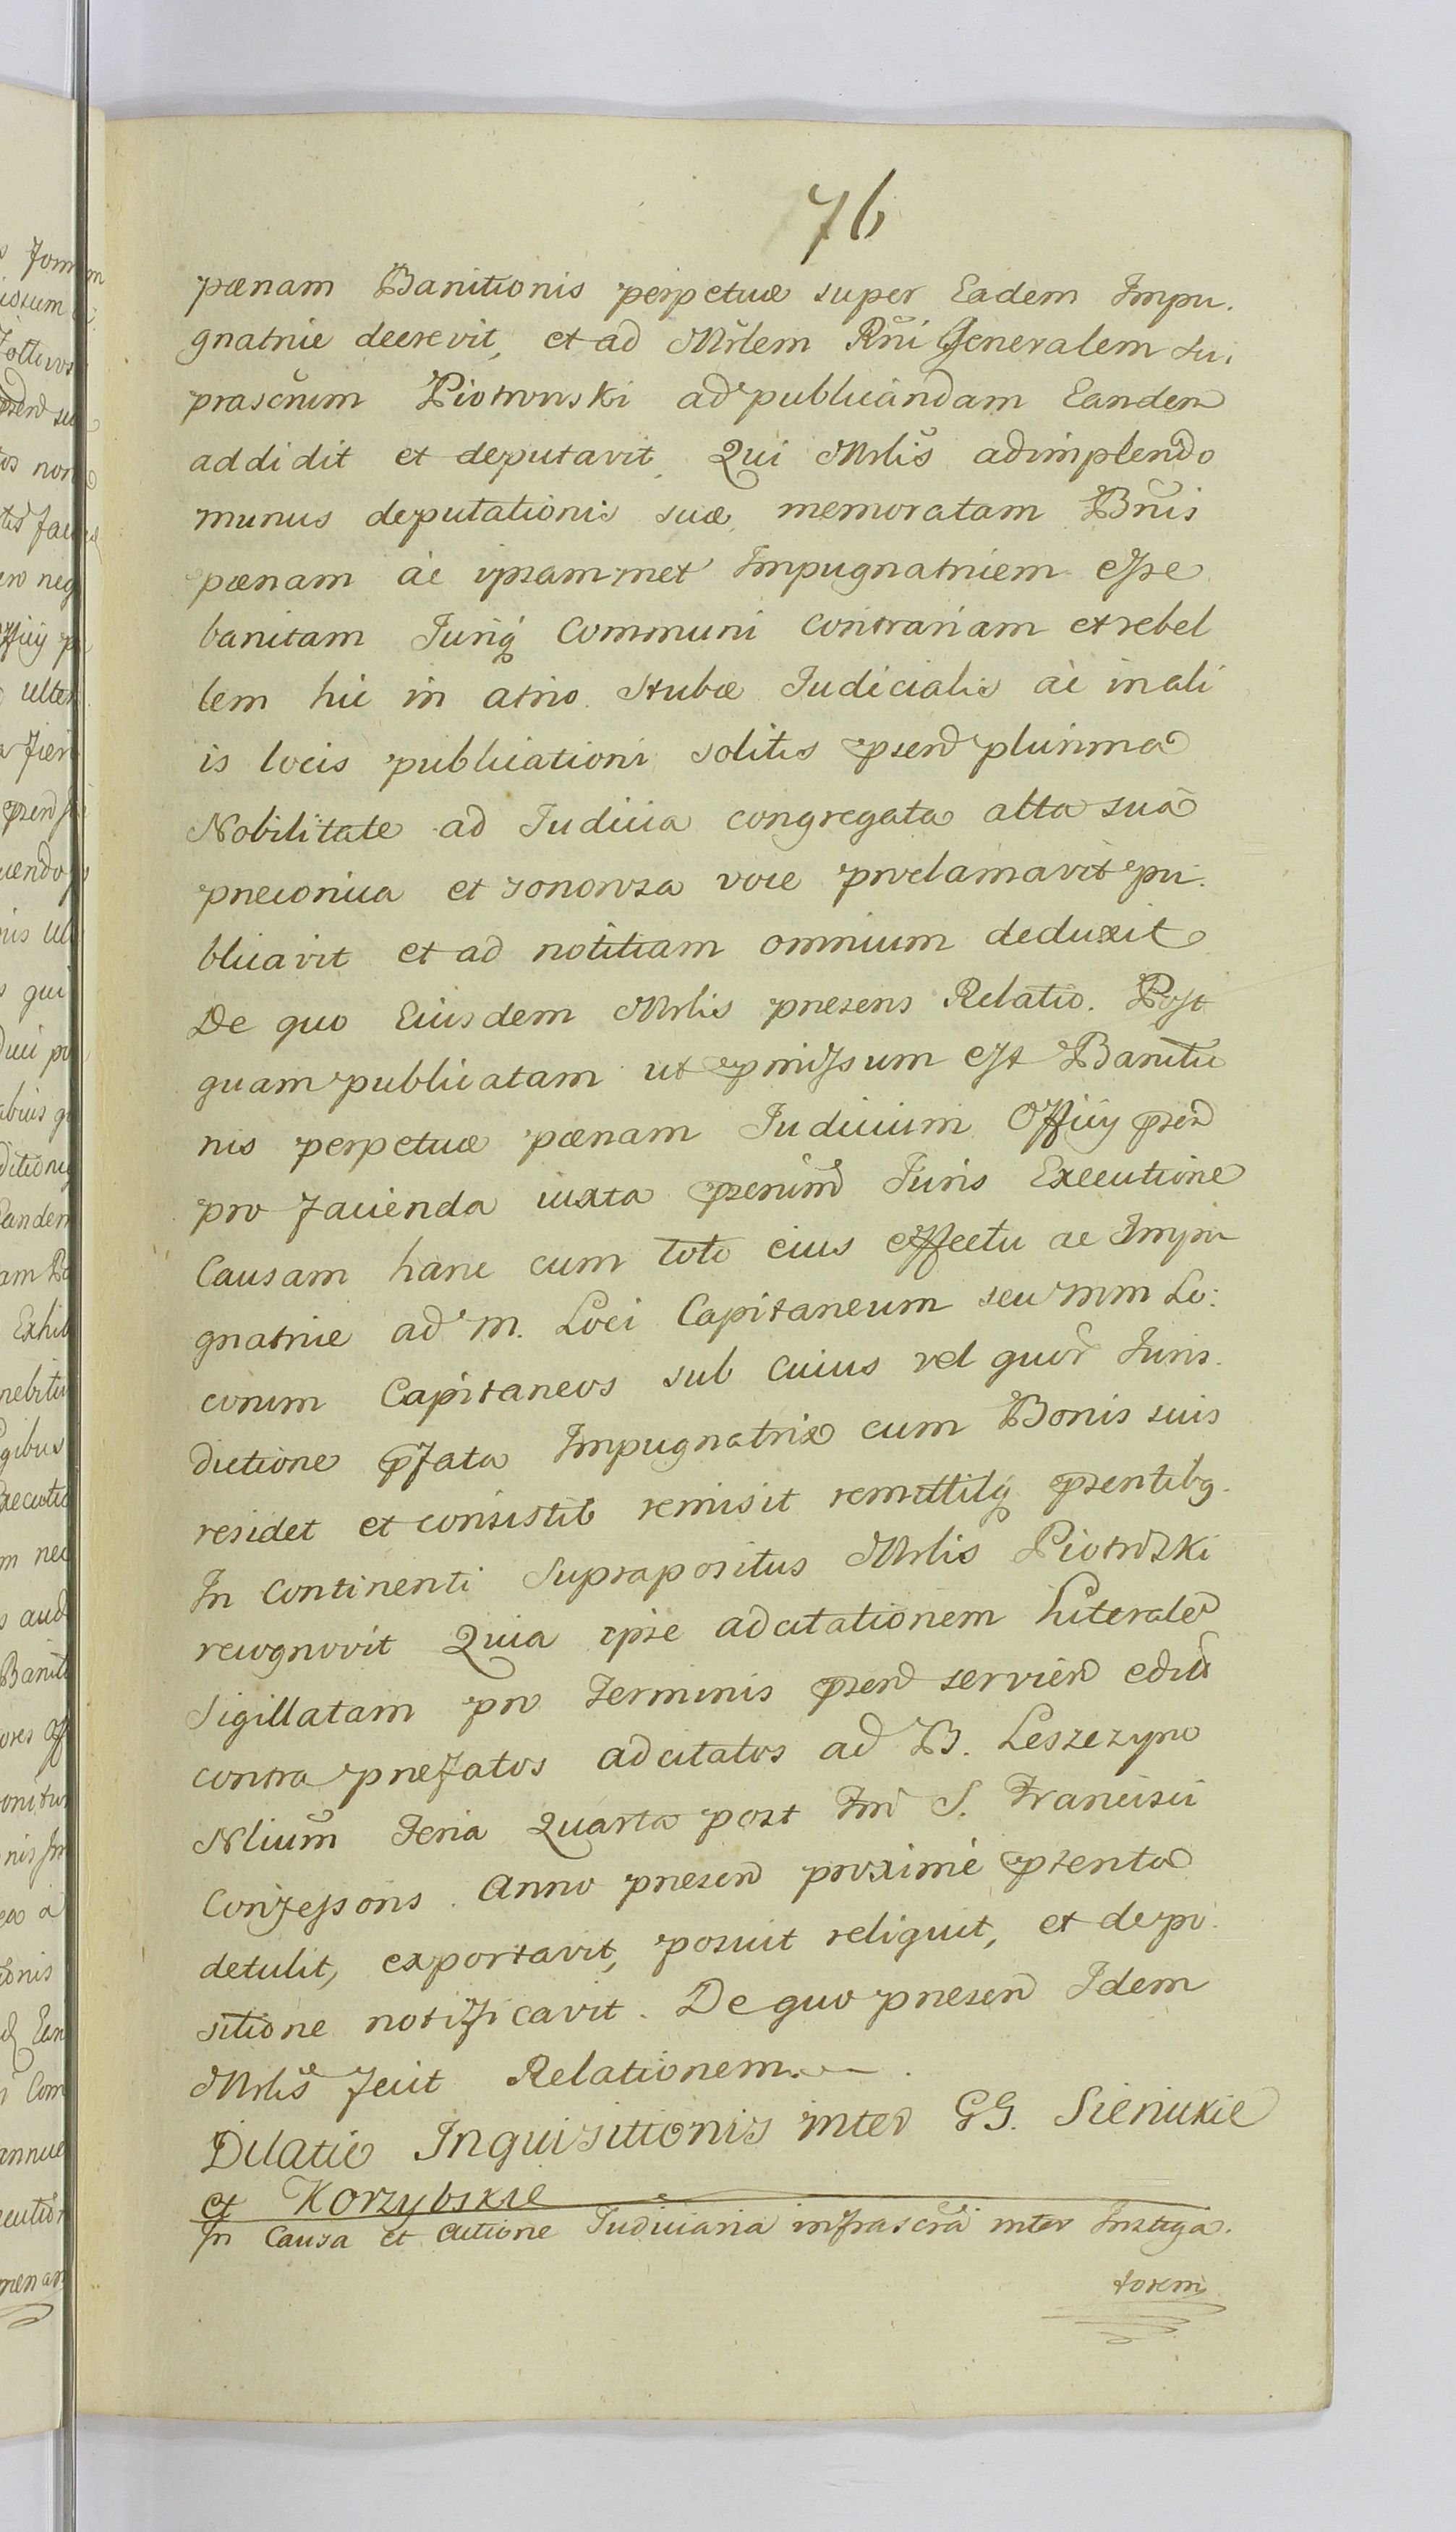 76
pœnam Banitionis perpetuæ super Eadem Impu.
gnatrice decrevit, et ad Mrlem Rni Generalem su,
prascrium Piotrowski ad publicandam Eandem
addidit et deputavit, Qui Mrlis adimplendo
munus deputationis suæ, memoratam Bnis
pœnam ac ipsammet Impugnatricem esse
banitam Juriq Communi contrariam et rebel
lem hic in atrio Stubæ Judicialis ac in ali
is locis publicationi solitis psend plurima
Nobilitate ad Judicia congregata alta sua
preconica et sonorosa voce proclamavit pu.
blicavit et ad notitiam omnium deduxit
De quo Eiusdem Mrlis presens Relatio. Post
quam publicatam ut pmissum est Banitio
nis perpetuæ pœnam Judicium Officij psen
pro facienda iuxta psenim Juris Executione
Causam hanc cum toto eius effectu ac Impu
gnatrice ad M. Loci Capitaneum seu MM Lo:
corum Capitaneos sub cuius vel quor Juris.
dictione pfata Impugnatrix cum Bonis suis
residet et consistit remisit remittitq psentibq.
In continenti Suprapositus Mrlis Piotrowski
recognovit Quia ipse adcitationem Literale
Sigillatam pro Terminis psen servien edit
contra prefatos adcitatos ad B. Leszczyno
Nlium Feria Quarta post Fm S. Francisci
Confessoris Anno presen proxime pterito
detulit, exportavit, posuit reliquit, et depo.
sitione notificavit. De quo presen Idem
Mrlis fecit Relationem.
Dilatio Inquisitionis inter GG. Sienickie
et Korzybskie
In Causa et actione Judiciaria infrascra inter Instiga.
torem